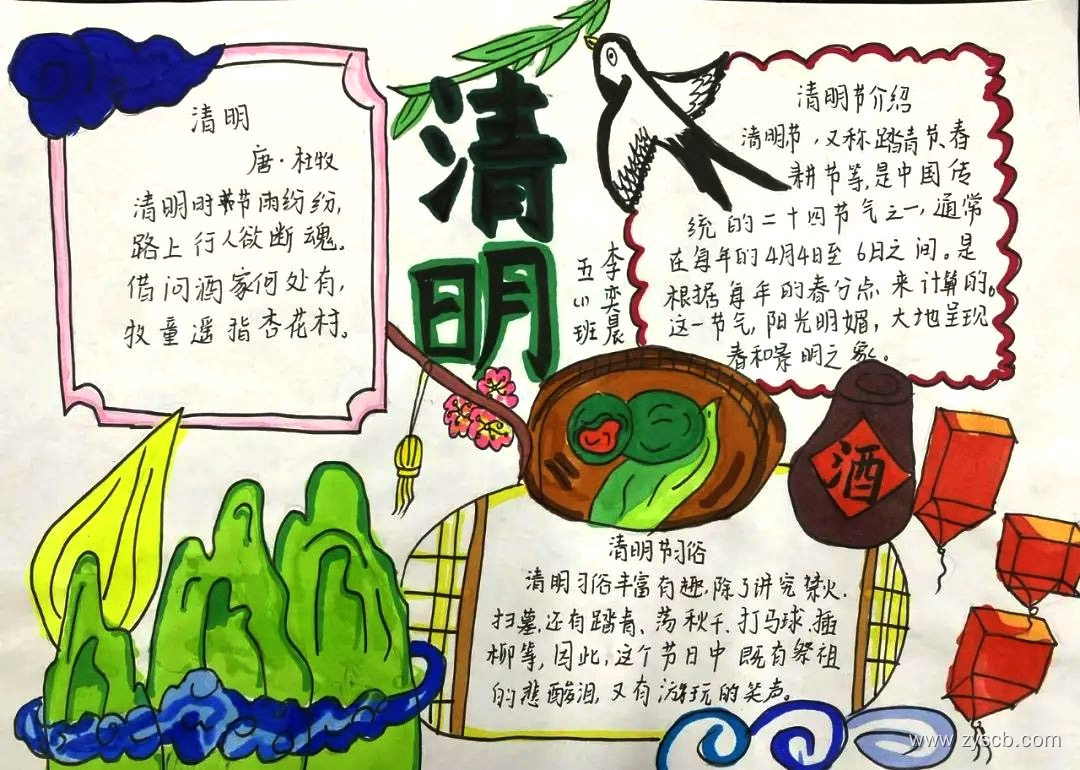 清明
唐·杜牧
清明时节雨纷纷,
路上行人欲断魂。
借问酒家何处有,
牧童遥指杏花村。
清明
李奕晨
五(1)班
清明节介绍
清明节,又称踏青节、春
耕节等,是中国传
统的二十四节气之一,通常
在每年的4月4日至6日之间。是
根据每年的春分点来计算的。
这一节气,阳光明媚,大地呈现
春和景明之象。
酒
清明节习俗
清明习俗丰富有趣,除了讲究禁火.
扫墓,还有踏青、荡秋千、打马球、插
柳等,因此,这个节日中既有祭祖
的悲酸泪,又有游玩的笑声。
www.zyscb.com